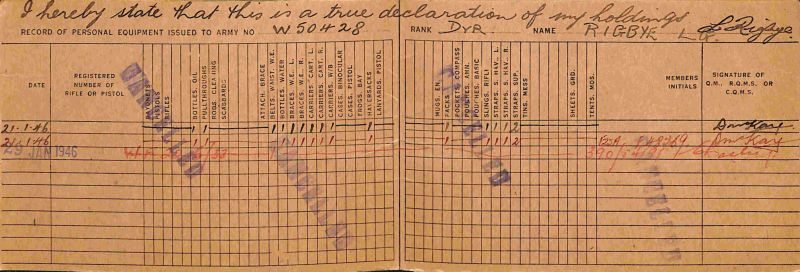 I hereby state that this is a true declaration of my holdings
RECORD OF PERSONAL EQUIPMENT ISSUED TO ARMY NO W 50428 RANK DVR. NAME RIGBYE L. L Rigbye.
DATE
REGISTERED NUMBER OF RIFLE OR PISTOL
BAYONETS
PISTOLS
RIFLES
BOTTLES, OIL
PULLTHROUGHS
RODS, CLEANING
SCABBARDS
ATTACH. BRACE
BELTS, WAIST, W.E.
BOTTLES, WATER
BRACES, W.E. L.
BRACES, W.E. R.
CARRIERS, CART. L.
CARRIERS, CART. R.
CARRIERS, W/B
CASES, BINOCULAR
CASES, PISTOL
FROGS, BAY
HAVERSACKS
LANYARDS, PISTOL
MUGS, E.I.
PACKS
POCKETS, COMPASS
POUCHES, AMN.
POUCHES, BASIC
SLINGS, RIFLE
STRAPS, S. HAV., L.
STRAPS, S. HAV., R.
STRAPS, SUP.
TINS, MESS
SHEETS, GRD.
TENTS, MOS.
MEMBERS INITIALS
SIGNATURE OF Q.M., R.Q.M.S. OR C.Q.M.S.
21-1-46 1 1 1 1 1 1 1 1 1 1 1 1 1 2
21-1-46 1 1 1 1 1 1 1 1 1 1 1 1 1 2
29 JAN 1946
CANCELLED
CANCELLED
CANCELLED
CANCELLED